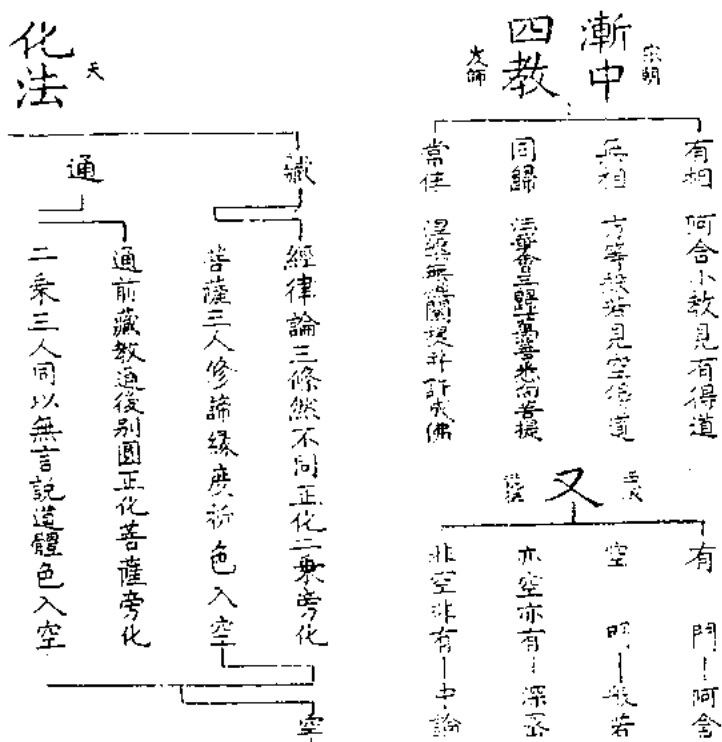 漸中
四教
宋朝
岌師
有相　阿含小教見有得道
無相　方等般若見空得道
同歸　法華會三歸一萬善悉向菩提
常住　涅槃無遮闡提許成佛
又
有門｜阿含
空｜般若
亦空亦有｜深密
非空非有｜中論
化法
天
藏
經律論三條然不同正化二乘旁化
菩薩三人修諦緣度析色入空
通
通前藏教通後別圓正化菩薩旁化
二乘三人同以無言說道體色入空
空